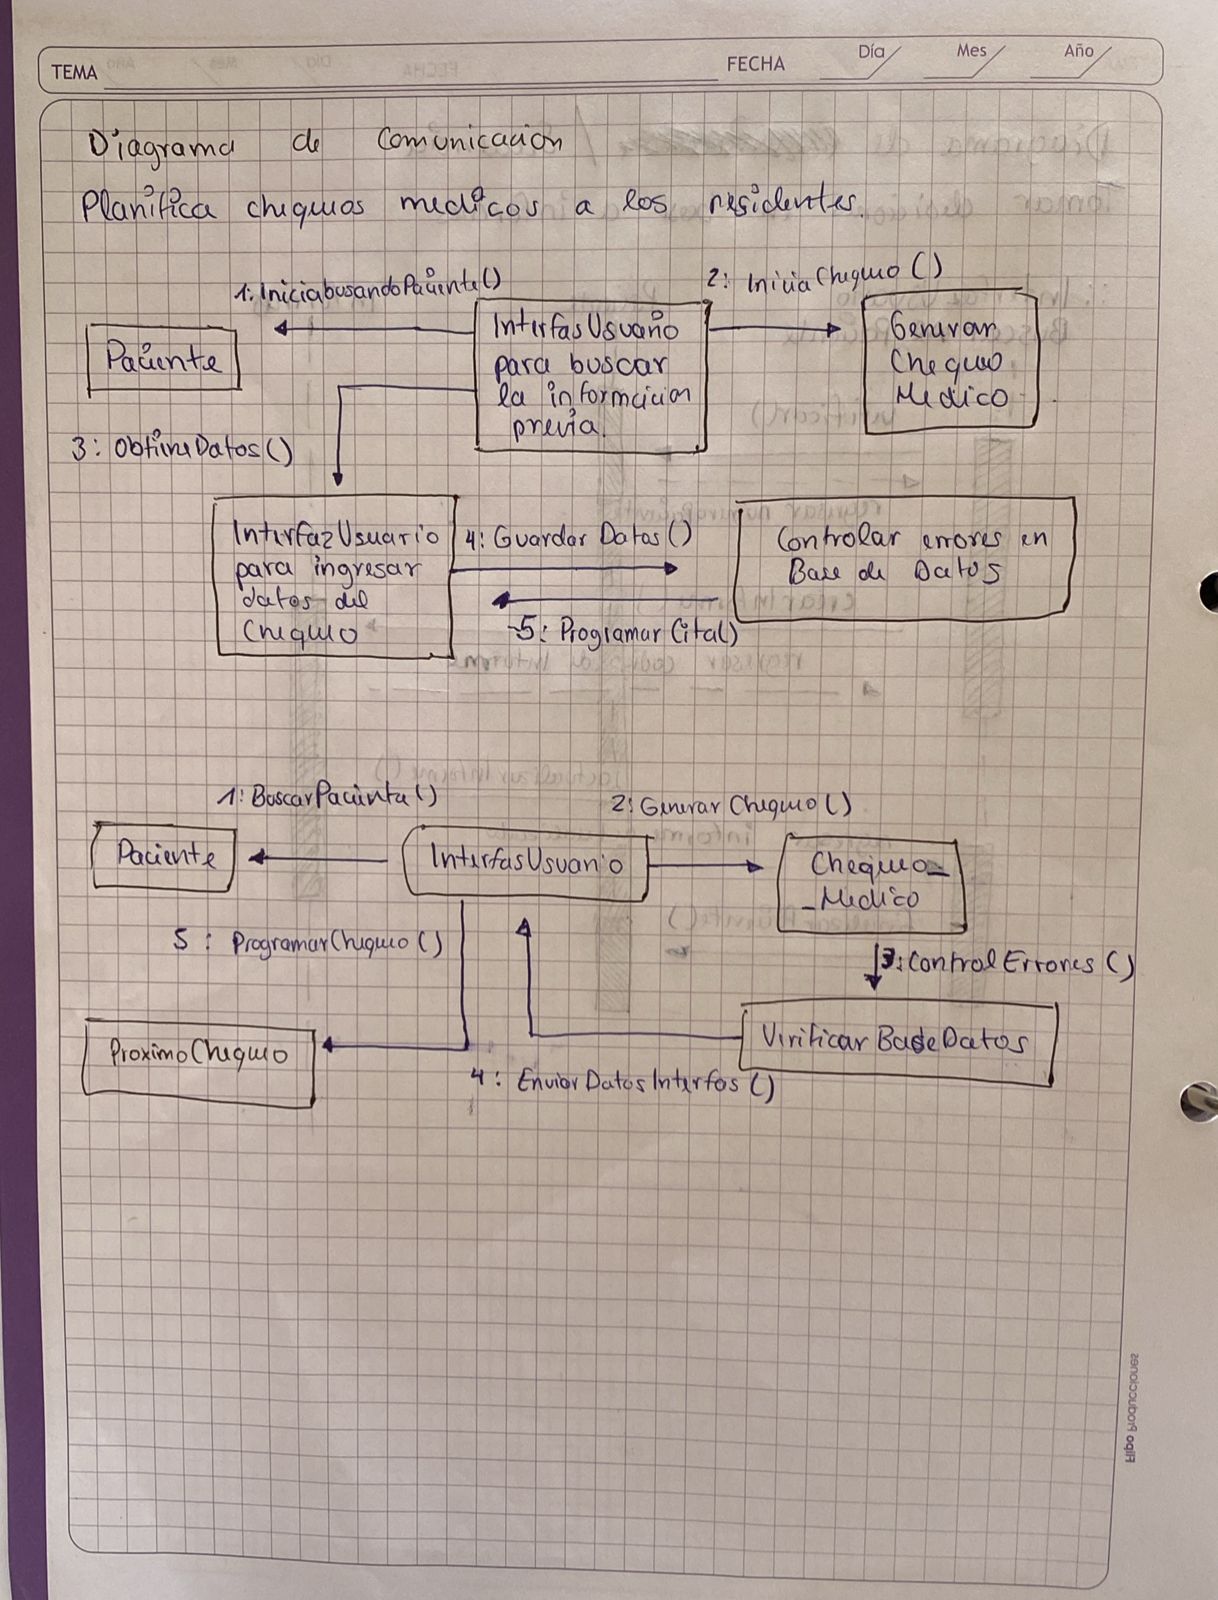 TEMA
FECHA
Día
Mes
Año
Diagrama de Comunicacion
Planifica chequeos medicos a los residentes.
1: IniciabusandoPaciente()
2: Inicia Chequeo ()
Paciente
InterfasUsuario
para buscar
la informcicion
previa.
Generar
Chequeo
Medico
3: ObtieneDatos()
InterfazUsuario
para ingresar
datos del
Chequeo
4: Guardar Datos()
-5: Programar Cita()
Controlar errores en
Base de Datos
1: BuscarPacienta()
2: Generar Chequeo()
Paciente
InterfasUsuario
Chequeo_
_Medico
5 : ProgramarChequeo()
3: Control Errores ()
ProximoChequeo
Virificar BaseDatos
4: EnviarDatos Interfas ()
Flipo Producciones